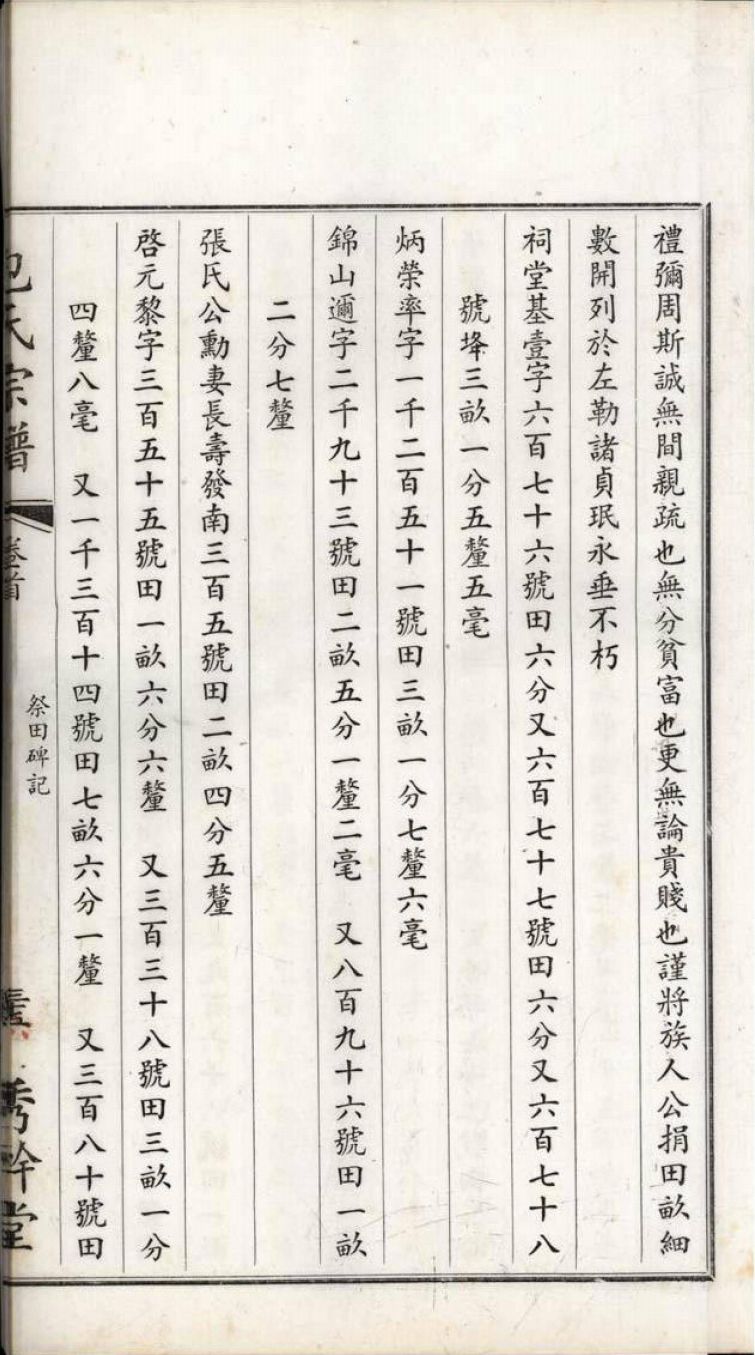 禮彌周斯誠無間親疏也無分貧富也更無論貴賤也謹將族人公捐田畝細
數開列於左勒諸貞珉永垂不朽
祠堂基壹字六百七十六號田六分又六百七十七號田六分又六百七十八
號埄三畝一分五釐五毫
炳榮率字一千二百五十一號田三畝一分七釐六毫
錦山邇字二千九十三號田二畝五分一釐二毫　又八百九十六號田一畝
二分七釐
張氏公勳妻長壽發南三百五號田二畝四分五釐
啓元黎字三百五十五號田一畝六分六釐　又三百三十八號田三畝一分
四釐八毫　又一千三百十四號田七畝六分一釐　又三百八十號田
包氏宗譜
卷首
祭田碑記
秀幹堂